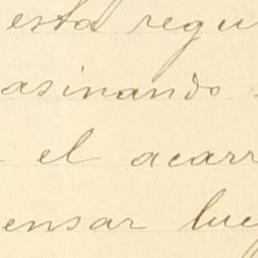 esta regu
asinando
el acarr
ensar lue